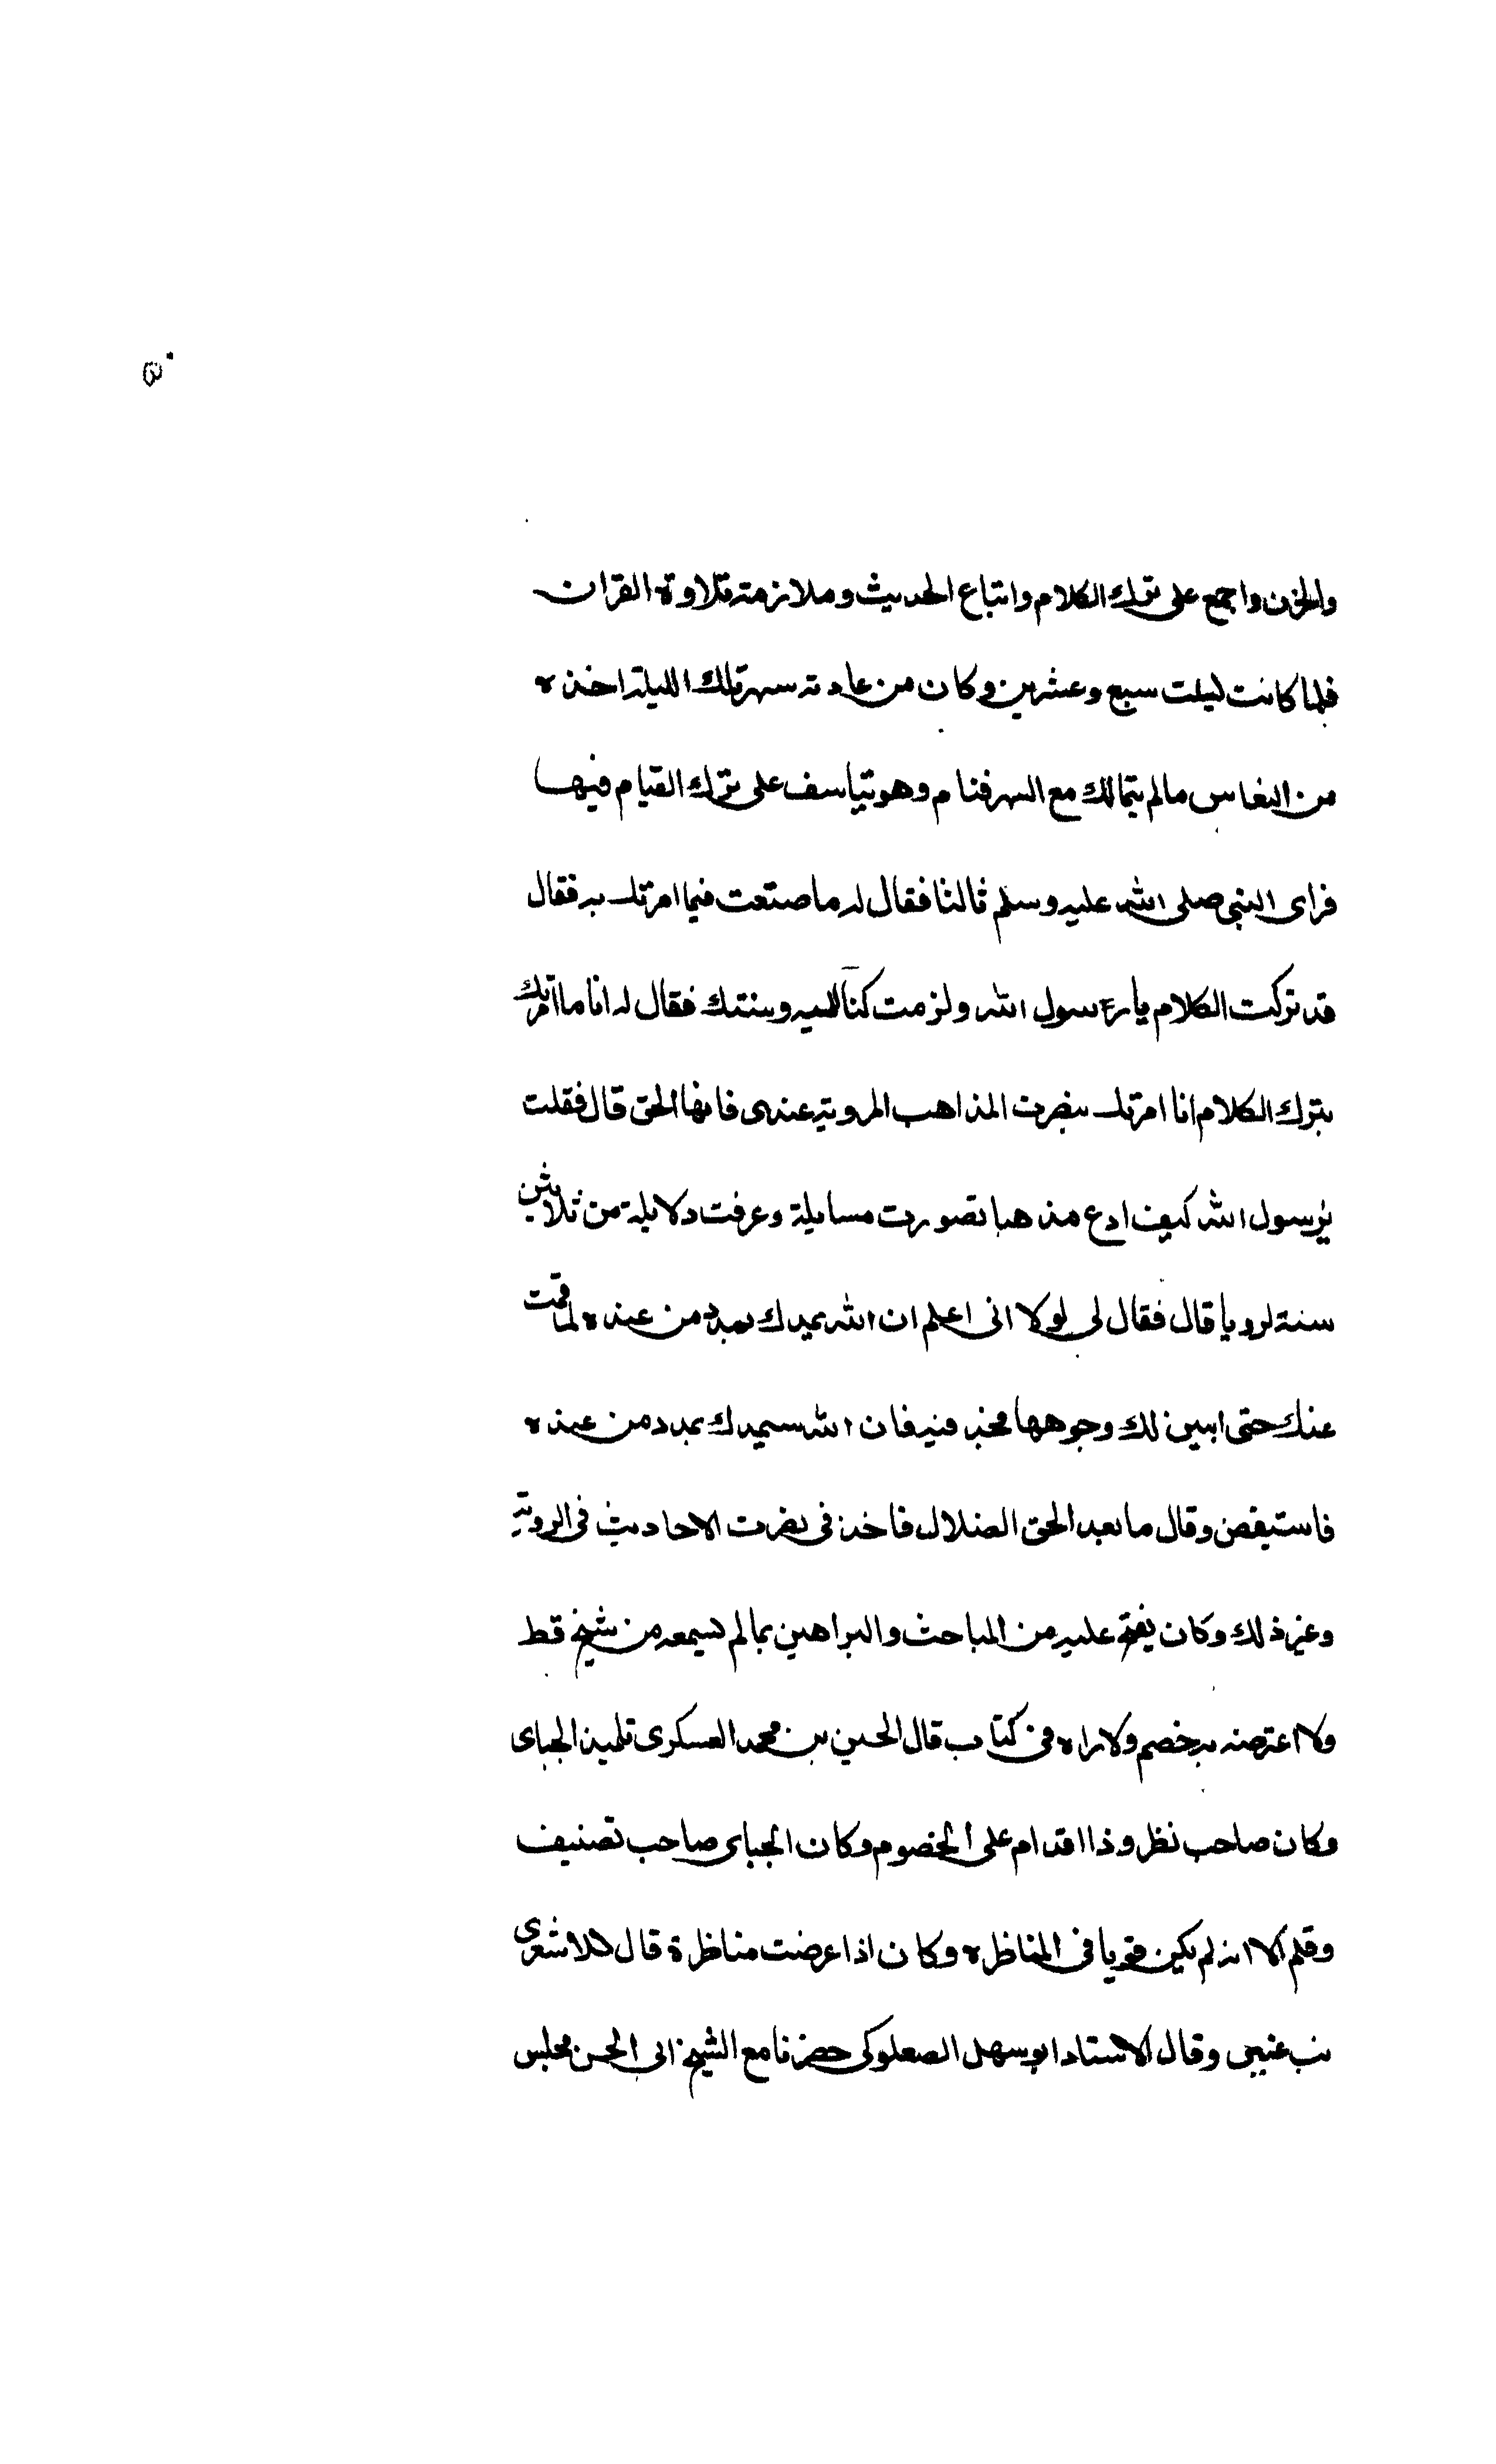 ٥٠
والحزن واجمع على ترك الكلام واتباع الحديث وملازمته تلاوة القران
فلما كانت ليلت سبع وعشرين وكان من عادته سهر تلك الليلة اخذه
من النعاس مالم يتمالك مع السهر فنام وهو يتياسف على ترك القيام فيها
فراى النبي صلى الله عليه وسلم ثالثا فقال له ما صنعت فيما امرتك به فقال
قد تركت الكلام يا رسول الله ولزمت كتاب الله وسنتك فقال له انا ما امرتك
بترك الكلام انا امرتك بنصرت المذاهب المروية عندي فانها الحق قال فقلت
يرسول الله كيف ادع مذهبا تصورت مسايلة وعرفت دلايلة من ثلاثين
سنة لرويا قال فقال لي لولا اني اعلم ان الله يمدك بمدد من عنده لما قمت
عنك حتى ابين لك وجوهها فخذ فيه فان الله سيمدك بمدد من عنده
فاستيقض وقال ما بعد الحق الضلال فاخذ في نصرت الاحاديث في الروية
وغير ذلك وكان يفتح عليه من المباحث والبراهين بمالم يسمعه من شيخ قط
ولا اعترضه به خصم ولا راه في كتاب قال الحسين بن محمد العسكري تلميذ الجباي
وكان صاحب نظر وذا اقدام على الخصوم وكان الجباي صاحب تصنيف
وقلم الا انه لم يكن قويا في المناظره وكان اذا عرضت مناظرة قال للاشعري
نب عني وقال الاستاد ابو سهل الصعلوكي حضرنا مع الشيخ ابى الحسن مجلس